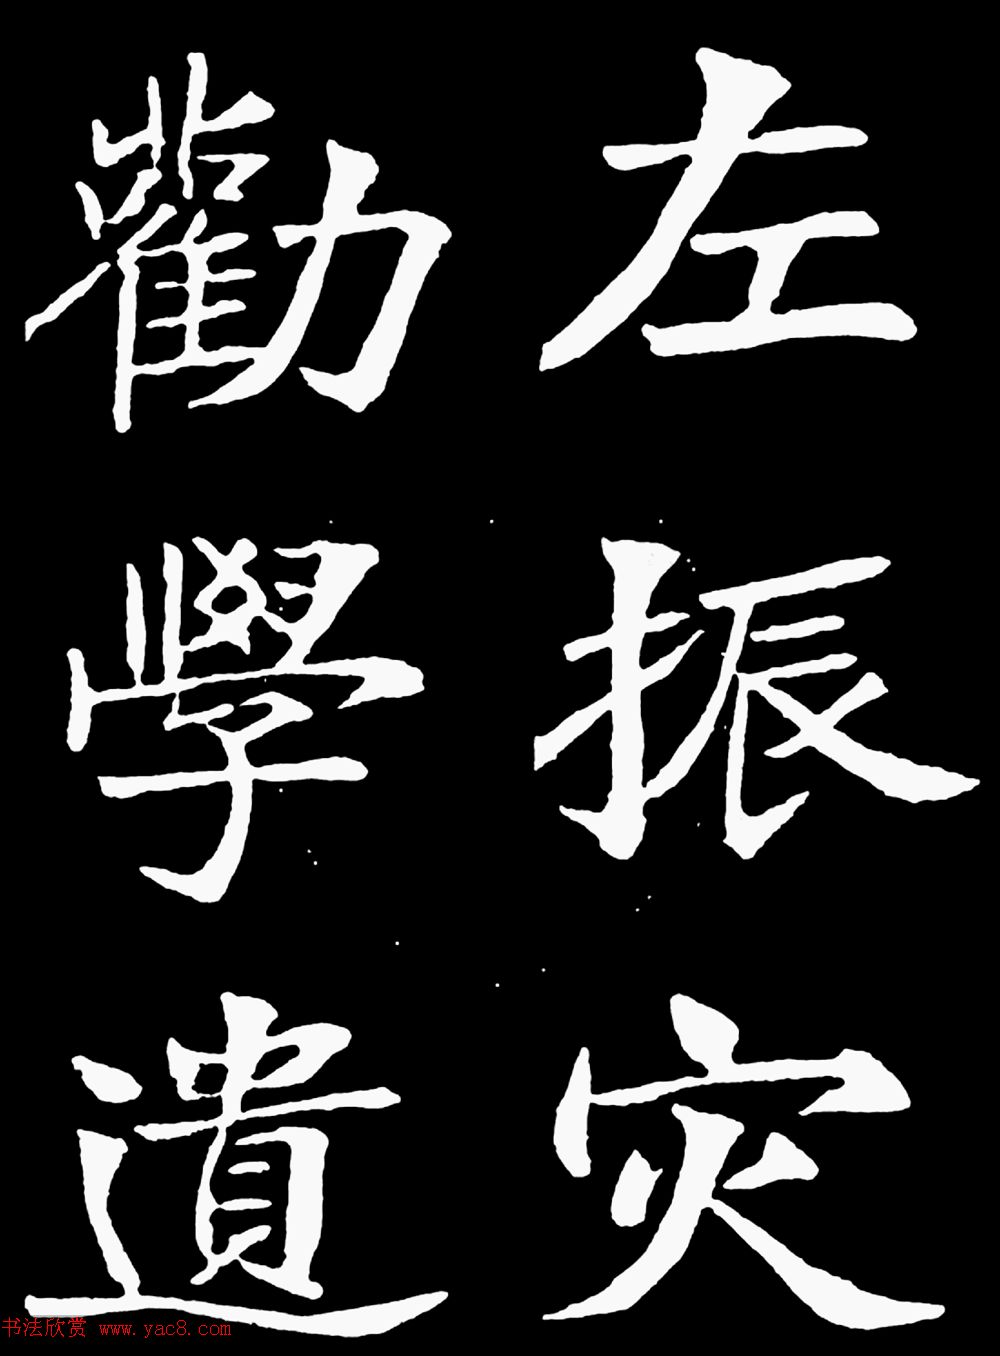 左振灾
勸學遺
书法欣赏 www.yac8.com